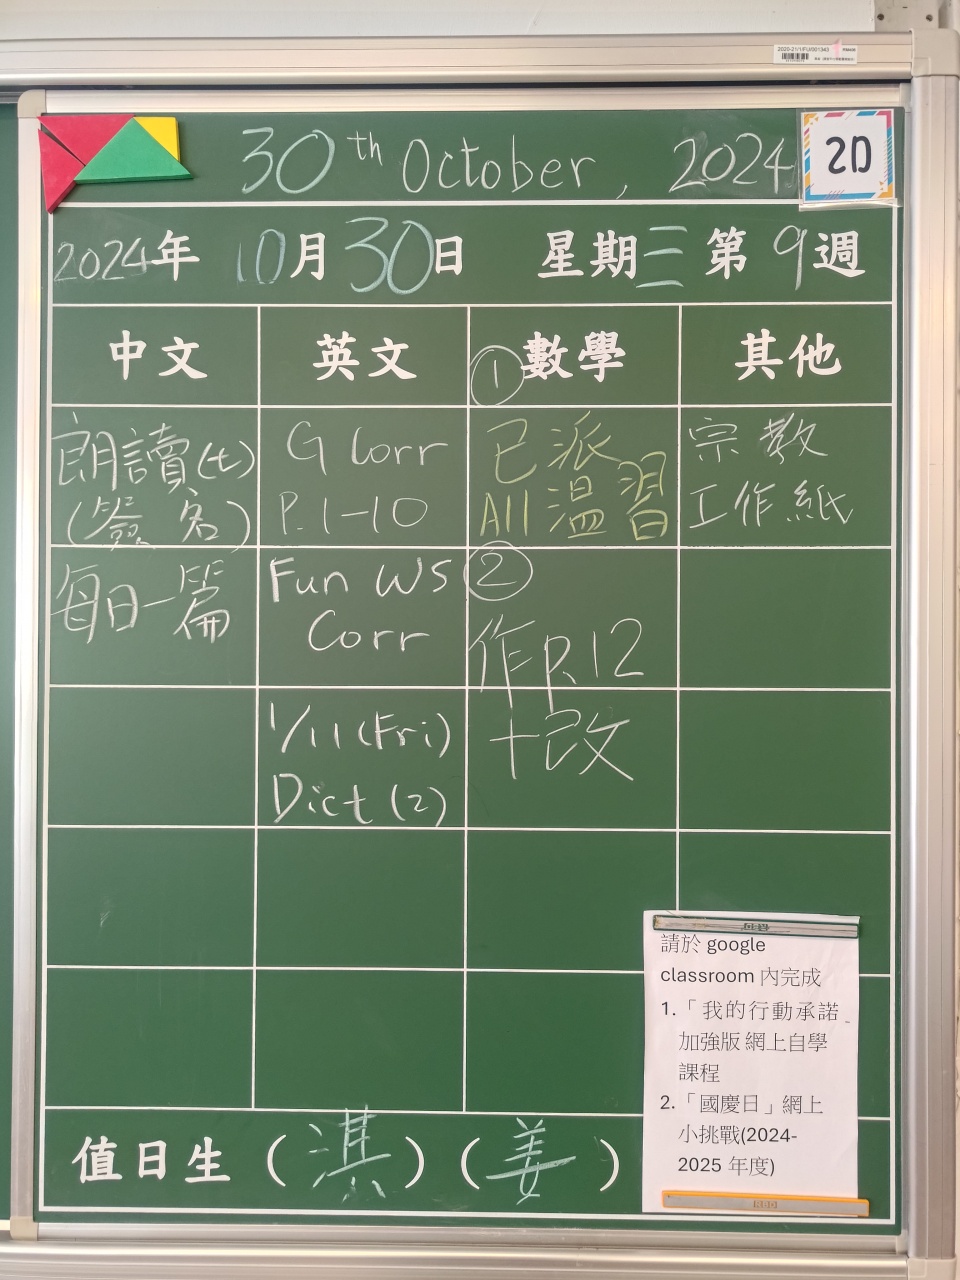 2020-21/1/FU/001343
30th October, 2024
2D
2024年 10月30日 星期三 第9週
中文
英文
①數學
其他
朗讀(七)
(簽名)
每日一篇
G Corr
P.1-10
Fun WS
Corr
1/11 (Fri)
Dict (2)
已派
All 溫習
②
作P.12
十改
宗教
工作紙
請於 google
classroom 內完成
1.「我的行動承諾
加強版 網上自學
課程
2.「國慶日」網上
小挑戰(2024-
2025 年度)
值日生 (淇) (姜)